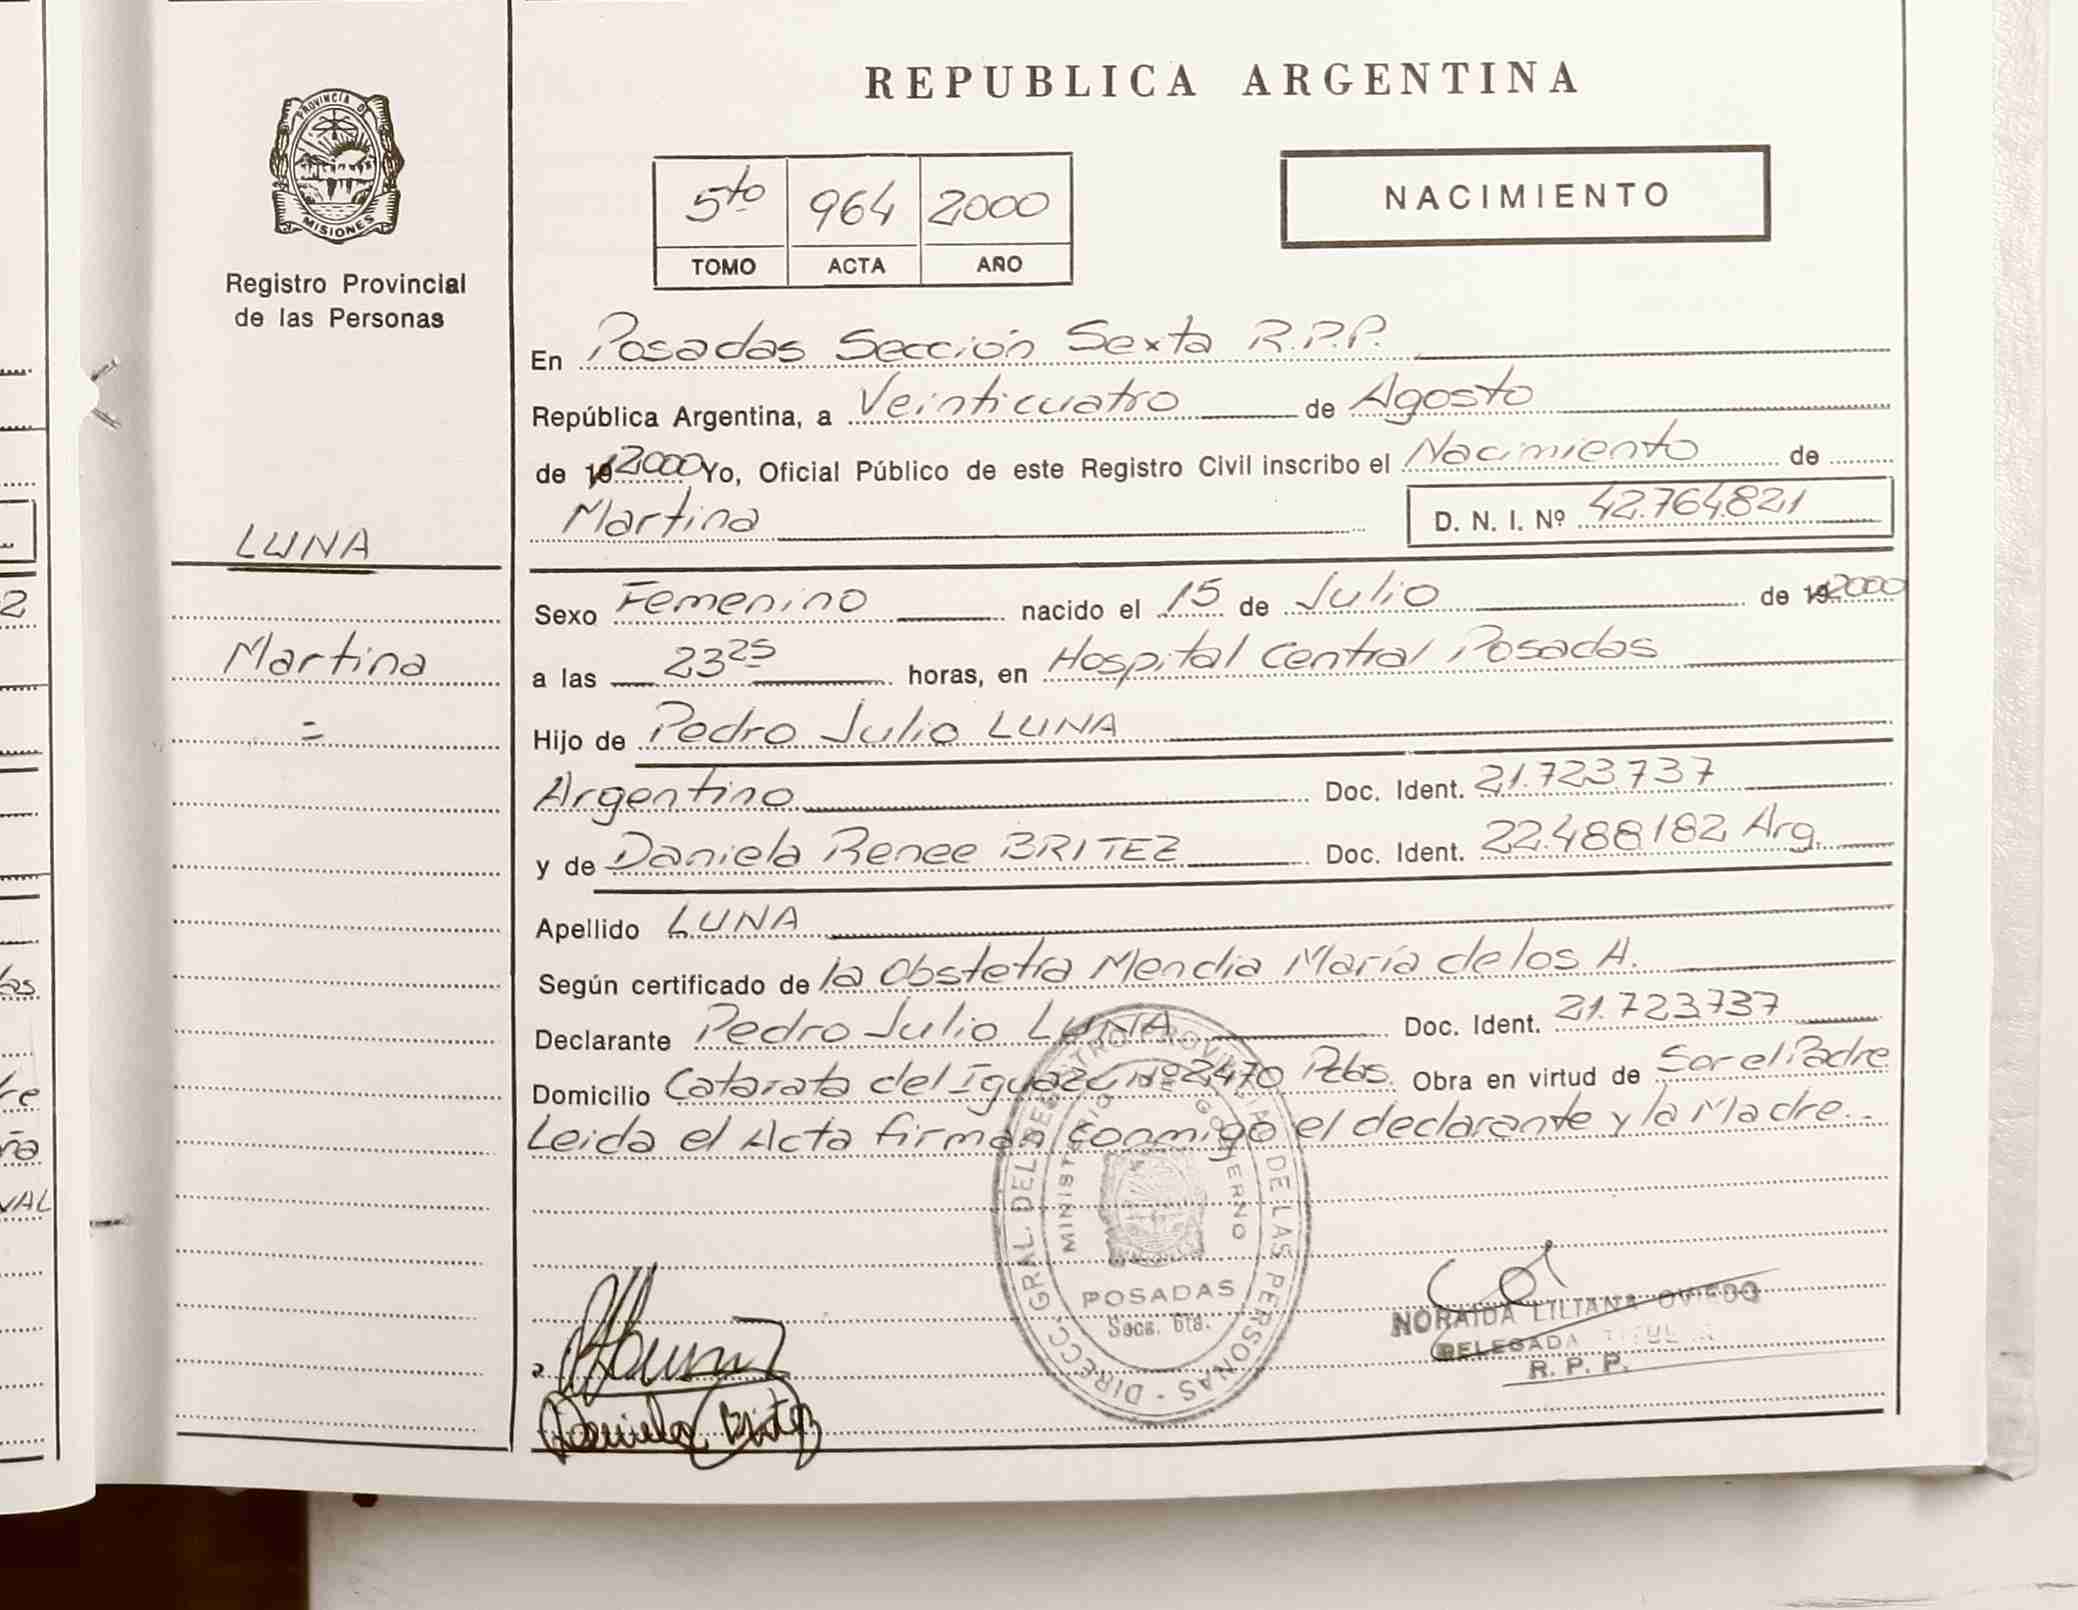 REPUBLICA ARGENTINA
PROVINCIA DE
MISIONES
Registro Provincial
de las Personas
5to 964 2000
TOMO ACTA AÑO
NACIMIENTO
En Posadas Sección Sexta R.P.P.
República Argentina, a Veinticuatro de Agosto
de 19 2000 Yo, Oficial Público de este Registro Civil inscribo el Nacimiento de
Martina D. N. I. Nº 42.764.821
LUNA
Martina
=
Sexo Femenino nacido el 15 de Julio de 19 2000
a las 23 25 horas, en Hospital Central Posadas
Hijo de Pedro Julio LUNA
Argentino Doc. Ident. 21.723.737
y de Daniela Renee BRITEZ Doc. Ident. 22.488.182 Arg.
Apellido LUNA
Según certificado de la Obstetra Mendia María de los A.
Declarante Pedro Julio LUNA Doc. Ident. 21.723.737
Domicilio Catarata del Iguazú Nº 2470 Pdas. Obra en virtud de Ser el Padre
Leida el Acta firman conmigo el declarante y la Madre.-
DIRECC. GRAL. DEL REGISTRO PROVINCIAL DE LAS PERSONAS
MINISTERIO DE GOBIERNO
POSADAS
Secc. 6ta.
NORAIDA LILIANA OVIEDO
DELEGADA TITULAR
R. P. P.
Daniela Britez
2
as
re
ña
VAL